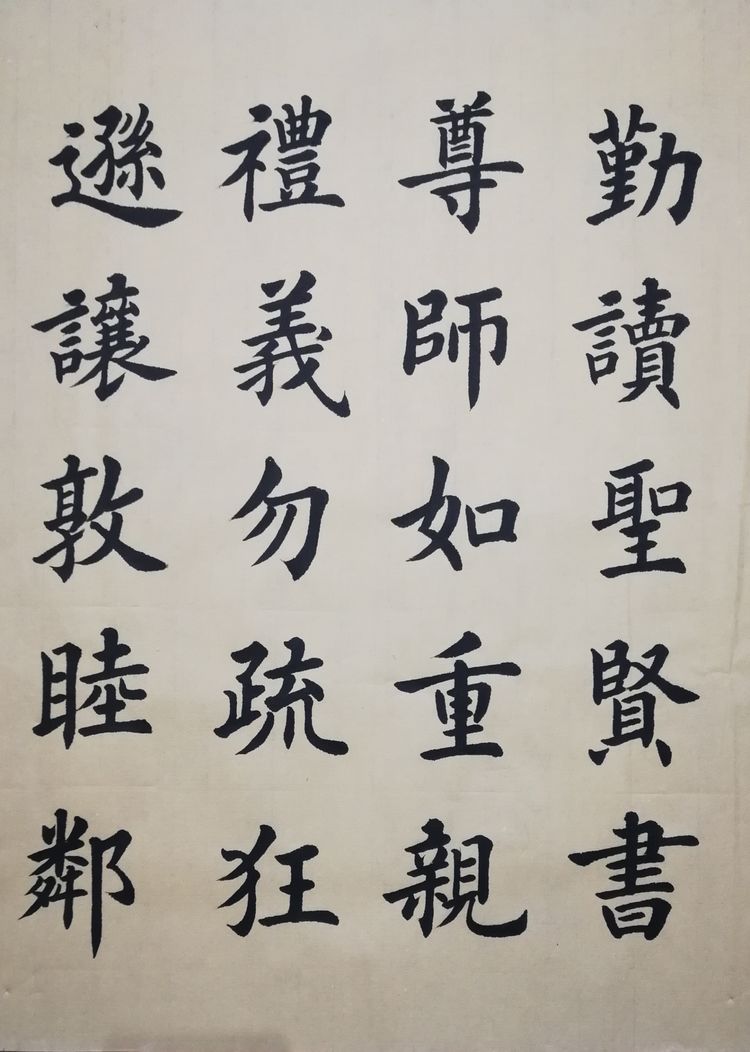 勤讀聖賢書
尊師如重親
禮義勿疏狂
遜讓敦睦鄰